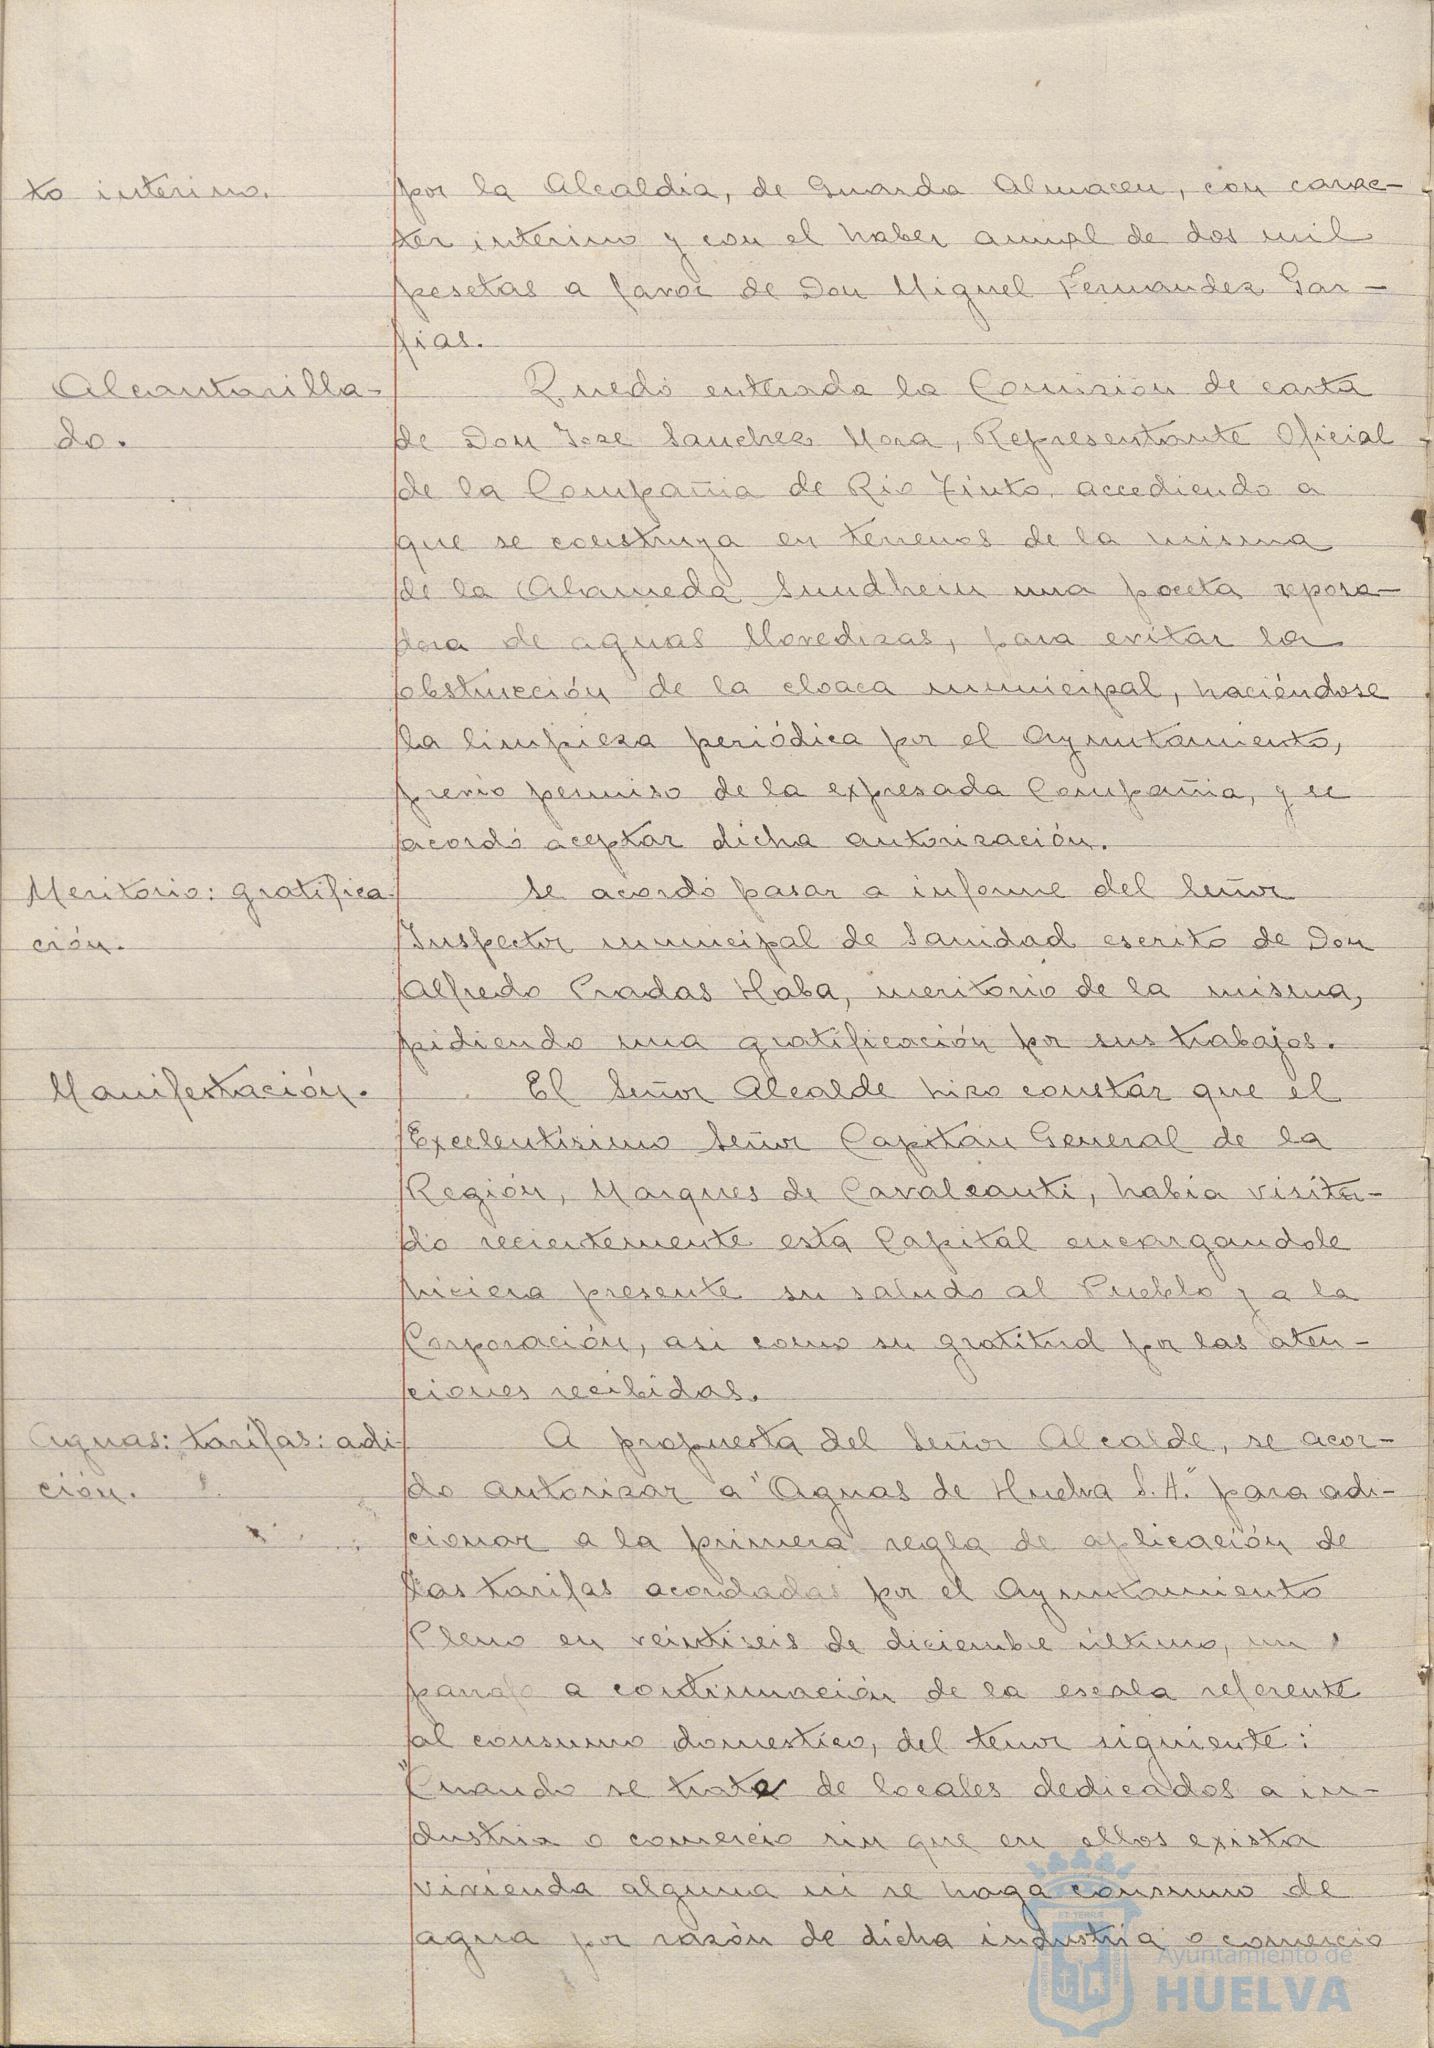 to interino.
por la Alcaldía, de Guarda Almacen, con carac-
ter interino y con el haber anual de dos mil
pesetas a favor de Don Miguel Fernandez Gar-
fias.
Alcantarilla-
do.
Quedó enterada la Comisión de carta
de Don Jose Sanchez Mora, Representante Oficial
de la Compañia de Rio Tinto, accediendo a
que se construya en terrenos de la misma
de la Alameda Sundheim una poceta reposa-
dora de aguas llovedizas, para evitar la
obstrucción de la cloaca municipal, haciéndose
la limpieza periódica por el Ayuntamiento,
previo permiso de la expresada Compañia, y se
acordó aceptar dicha autorización.
Meritorio: gratifica
ción.
Se acordó pasar a informe del Señor
Inspector municipal de Sanidad escrito de Don
Alfredo Pradas Haba, meritorio de la misma,
pidiendo una gratificación por sus trabajos.
Manifestación.
El Señor Alcalde hizo constar que el
Excelentísimo Señor Capitan General de la
Región, Marques de Cavalcanti, habia visita-
do recientemente esta Capital encargandole
hiciera presente su saludo al Pueblo y a la
Corporación, asi como su gratitud por las aten-
ciones recibidas.
Aguas: tarifas: adi
ción.
A propuesta del Señor Alcalde, se acor-
do autorizar a "Aguas de Huelva S.A." para adi-
cionar a la primera regla de aplicación de
las tarifas acordadas por el Ayuntamiento
Pleno en veintiseis de diciembre último, un
parrafo a continuación de la escala referente
al consumo domestico, del tenor siguiente:
"Cuando se trate de locales dedicados a in-
dustria o comercio sin que en ellos exista
vivienda alguna ni se haga consumo de
agua por razón de dicha industria o comercio
Ayuntamiento de
HUELVA